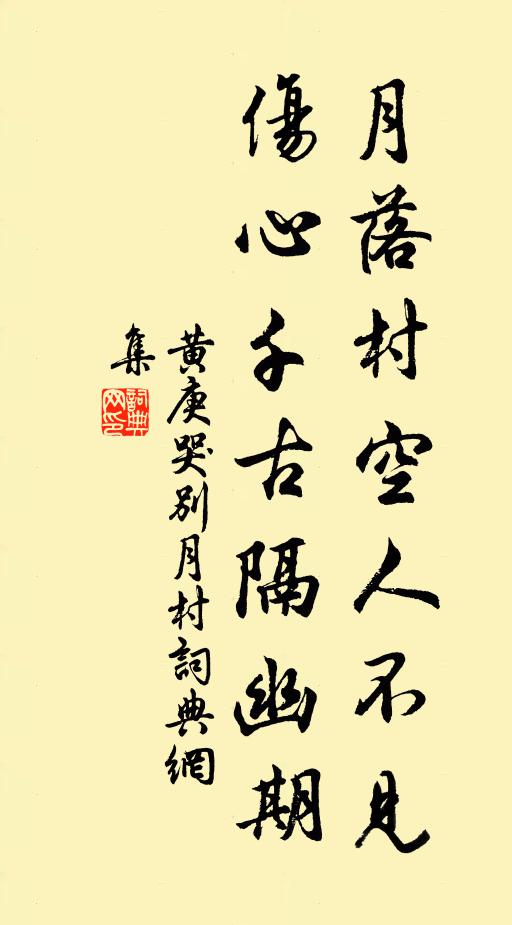 月落村空人不見
傷心千古隔幽期
黄庚哭别月村詞典網
集
詞典
网印